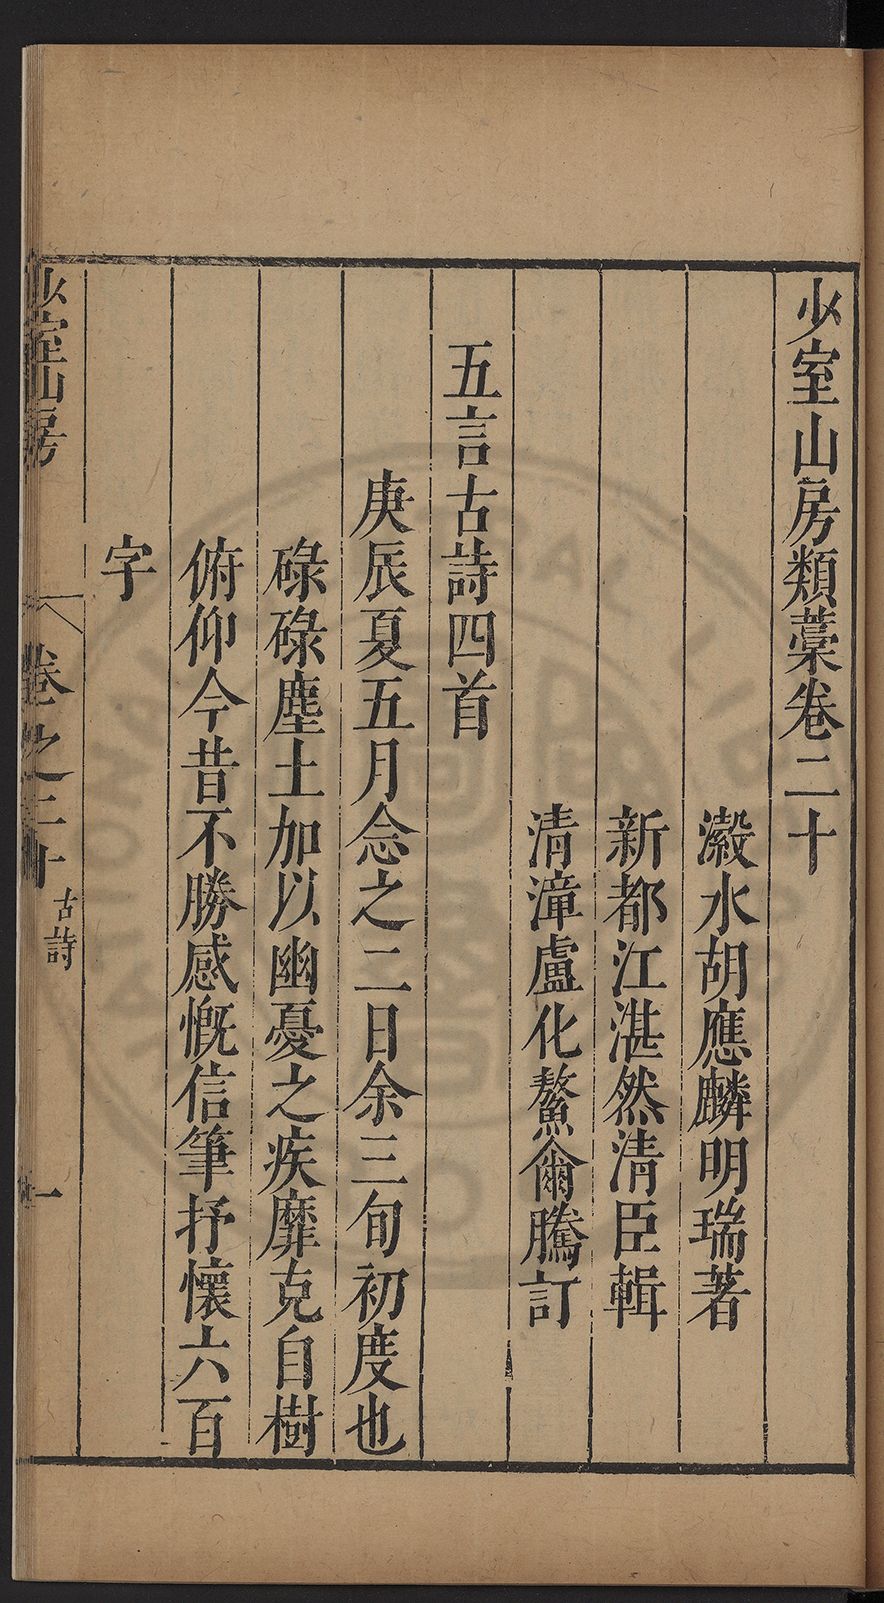 少室山房類藁卷二十
瀔水胡應麟明瑞著
新都江湛然清臣輯
清漳盧化鰲爾騰訂
五言古詩四首
庚辰夏五月念之二日余三旬初度也
碌碌塵土加以幽憂之疾靡克自樹
俯仰今昔不勝感慨信筆抒懷六百
字
少室山房
卷之二十
古詩
一